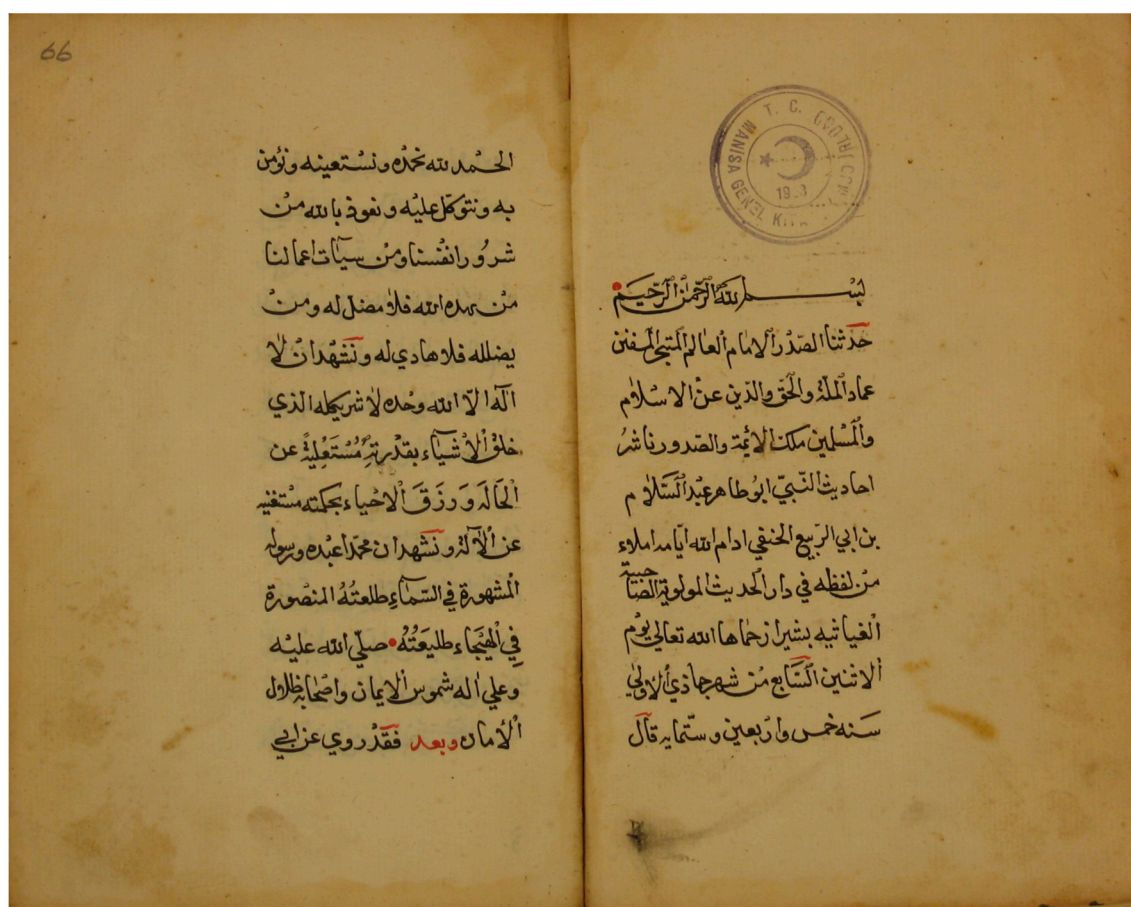 بسم الله الرحمن الرحيم
حدثنا الصدر الامام العالم المتبحر المفنن
عماد الملة والحق والدين عن الاسلام
والمسلمين ملك الائمة والصدور ناشر
احاديث النبي ابو طاهر عبد السلام
بن ابي الربيع الحنفي ادام الله ايامه املاء
من لفظه في دار الحديث المولوية الصاحبية
الغياثيه بشيراز حماها الله تعالي يوم
الاثنين السابع من شهر جمادي الاولي
سنه خمس واربعين وستمايه قال
66
الحمد لله نحمده ونستعينه ونؤمن
به ونتوكل عليه ونعوذ بالله من
شرور انفسنا ومن سيآت اعمالنا
من يهده الله فلا مضل له ومن
يضلله فلا هادي له ونشهد ان لا
اله الا الله وحده لا شريك له الذي
خلق الاشياء بقدرته مستعلية عن
الحاله ورزق الاحياء بحكمته مستغنيه
عن الآلة ونشهد ان محمدا عبده ورسوله
المشهورة في السماء طلعته المنصورة
في الهيجاء طليعته صلي الله عليه
وعلي اله شموس الايمان واصحابه ظلال
الامان وبعد فقد روي عن ابي
T. C.
MANISA GENEL